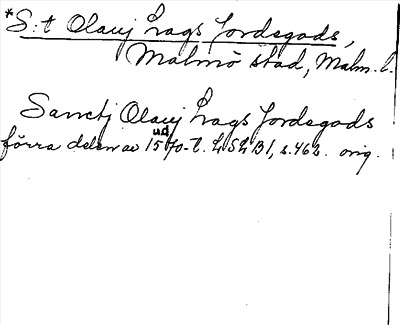 *S:t Olauj Lags Jordsgods,
Malmö stad, Malm. l.
Sanctj Olauj Lags Jordsgods
förra delen av 1570-t. LSLB1, s.462. orig.